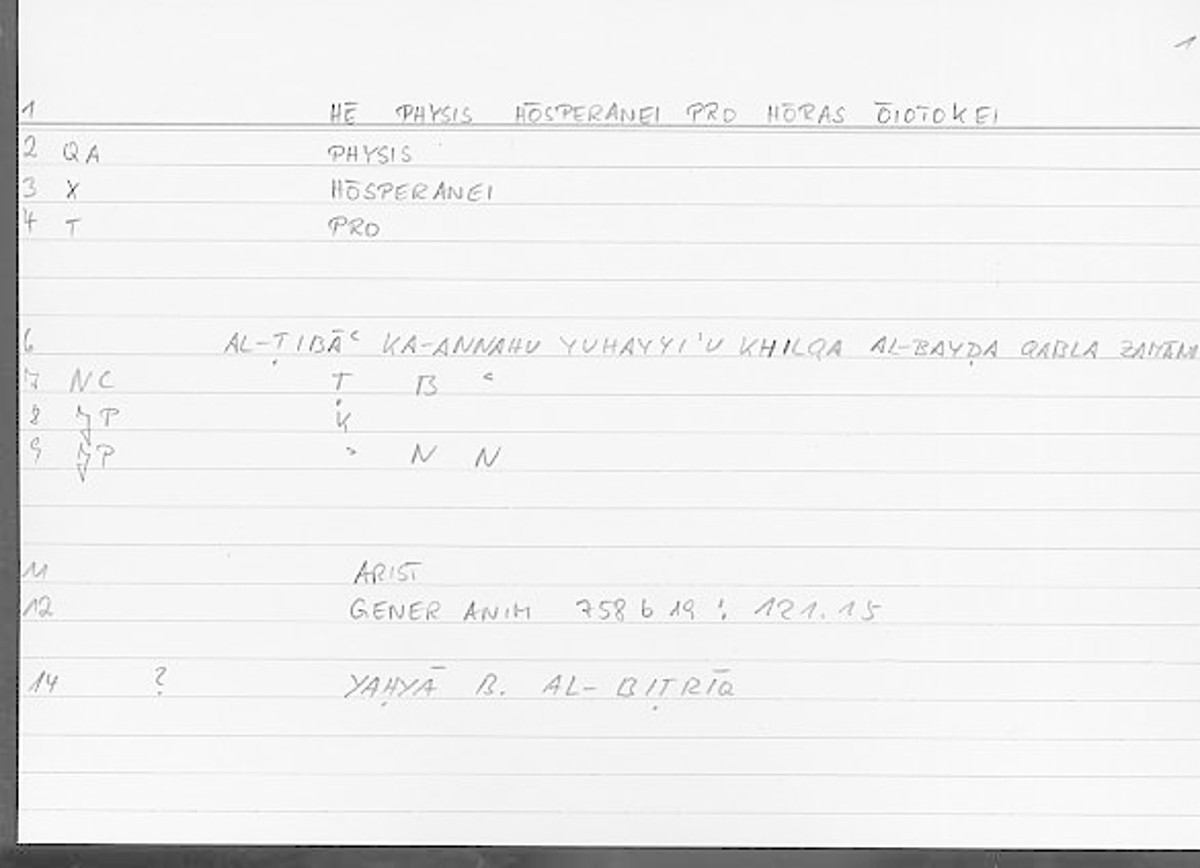 1
1 HĒ PHYSIS HŌSPERANEI PRO HŌRAS ŌIOTOKEI
2 QA PHYSIS
3 X HŌSPERANEI
4 T PRO
6 AL-ṬIBĀʿ KA-ANNAHU YUHAYYIʾU KHILQA AL-BAYḌA QABLA ZAMĀNI
7 NC Ṭ B ʿ
8 P K
9 P ʾ N N
11 ARIST
12 GENER ANIM 758 b 19 ; 121.15
14 ? YAḤYĀ B. AL-BIṬRĪQ